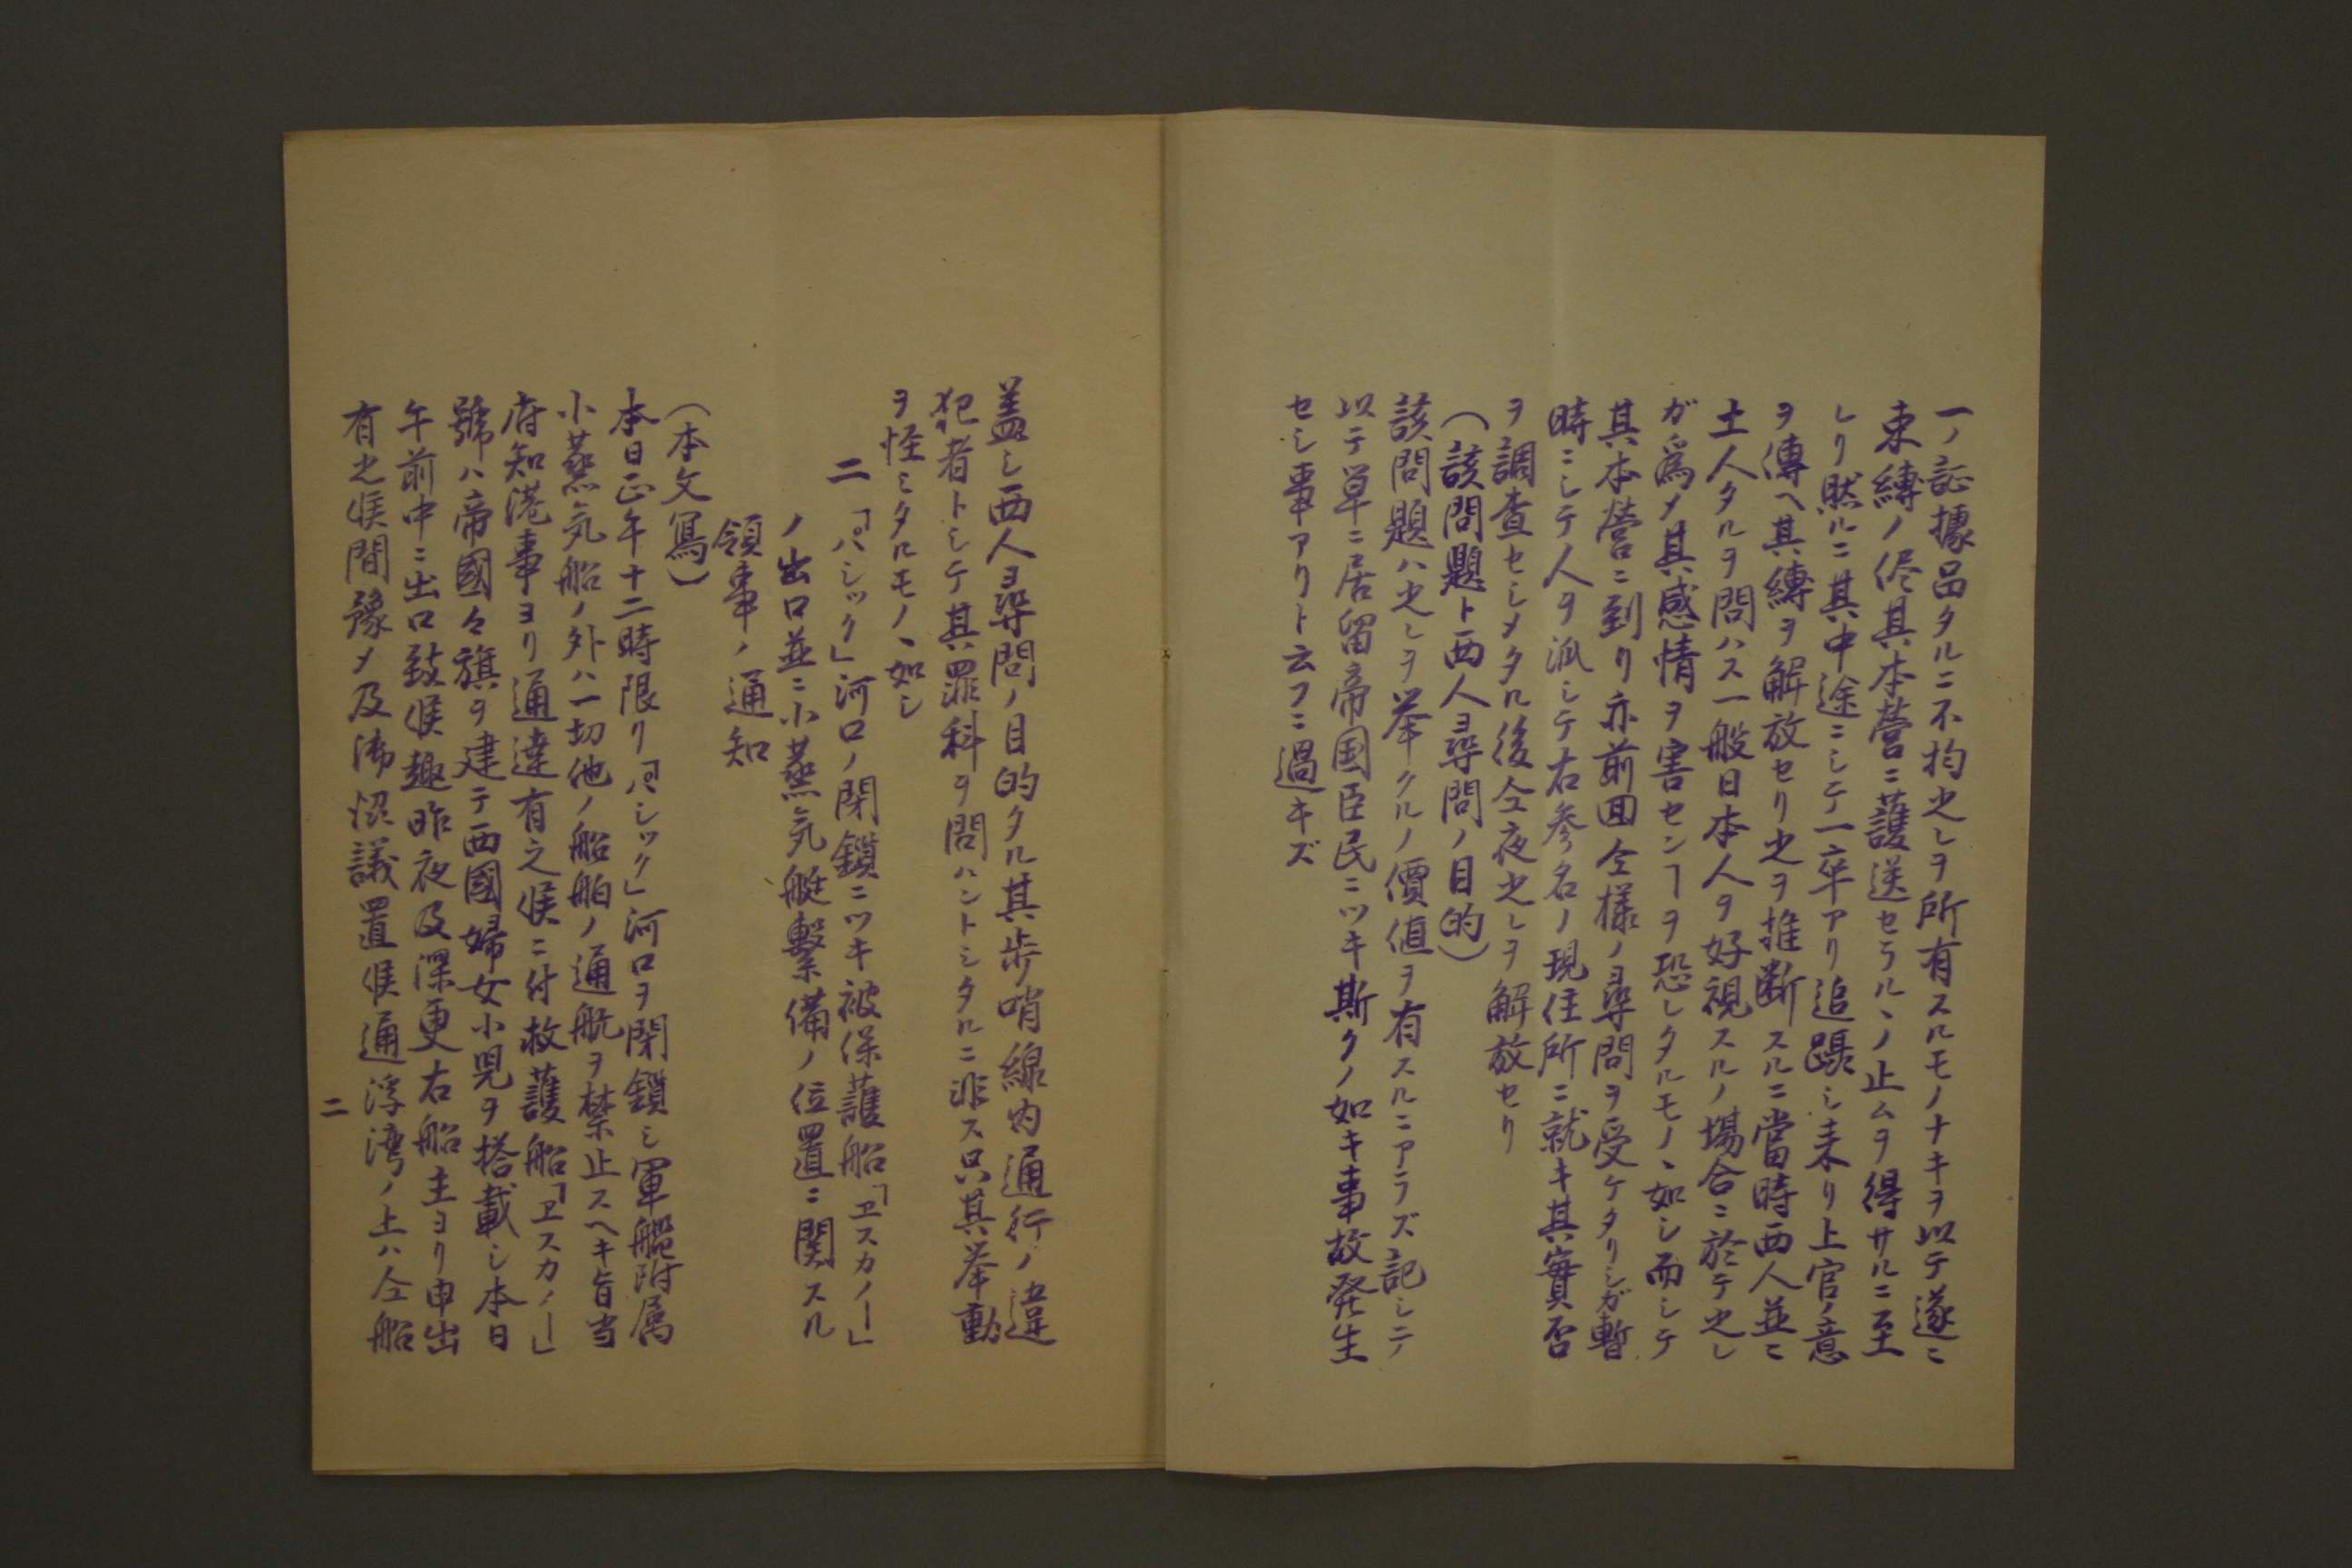 一ノ証據品タルニ不拘之レヲ所有スルモノナキヲ以テ遂ニ
束縛ノ侭其本營ニ護送セラルヽノ止ムヲ得サルニ至
レリ然ルニ其中途ニシテ一卒アリ追躡シ来リ上官ノ意
ヲ傳ヘ其縛ヲ解放セリ之ヲ推断スルニ當時西人並ニ
土人タルヲ問ハス一般日本人ヲ好視スルノ場合ニ於テ之レ
ガ為メ其感情ヲ害センヿヲ恐レタルモノヽ如シ而シテ
其本營ニ到リ亦前回仝様ノ尋問ヲ受ケタリシガ暫
時ニシテ人ヲ派シテ右参名ノ現住所ニ就キ其實否
ヲ調査セシメタル後仝夜之レヲ解放セリ
(該問題ト西人尋問ノ目的)
該問題ハ之レヲ挙クルノ價値ヲ有スルニアラズ記シテ
以テ単ニ居留帝国臣民ニツキ斯クノ如キ事故発生
セシ事アリト云フニ過キズ
蓋シ西人尋問ノ目的タル其歩哨線内通行ノ違
犯者トシテ其罪科ヲ問ハントシタルニ非ス只其挙動
ヲ怪ミタルモノヽ如シ
二「パシック」河口ノ閉鎖ニツキ被保護船「ヱスカノー」
ノ出口並ニ小蒸気艇繫備ノ位置ニ関スル
領事ノ通知
(本文寫)
本日正午十二時限リ「パシック」河口ヲ閉鎖シ軍艦附属
小蒸気船ノ外ハ一切他ノ船舶ノ通航ヲ禁止スヘキ旨当
府知港事ヨリ通達有之候ニ付救護船「ヱスカノー」
號ハ帝國々旗ヲ建テ西國婦女小児ヲ搭載シ本日
午前中ニ出口致候趣昨夜及深更右船主ヨリ申出
有之候間豫メ及御協議置候通浮湾ノ上ハ仝船
二